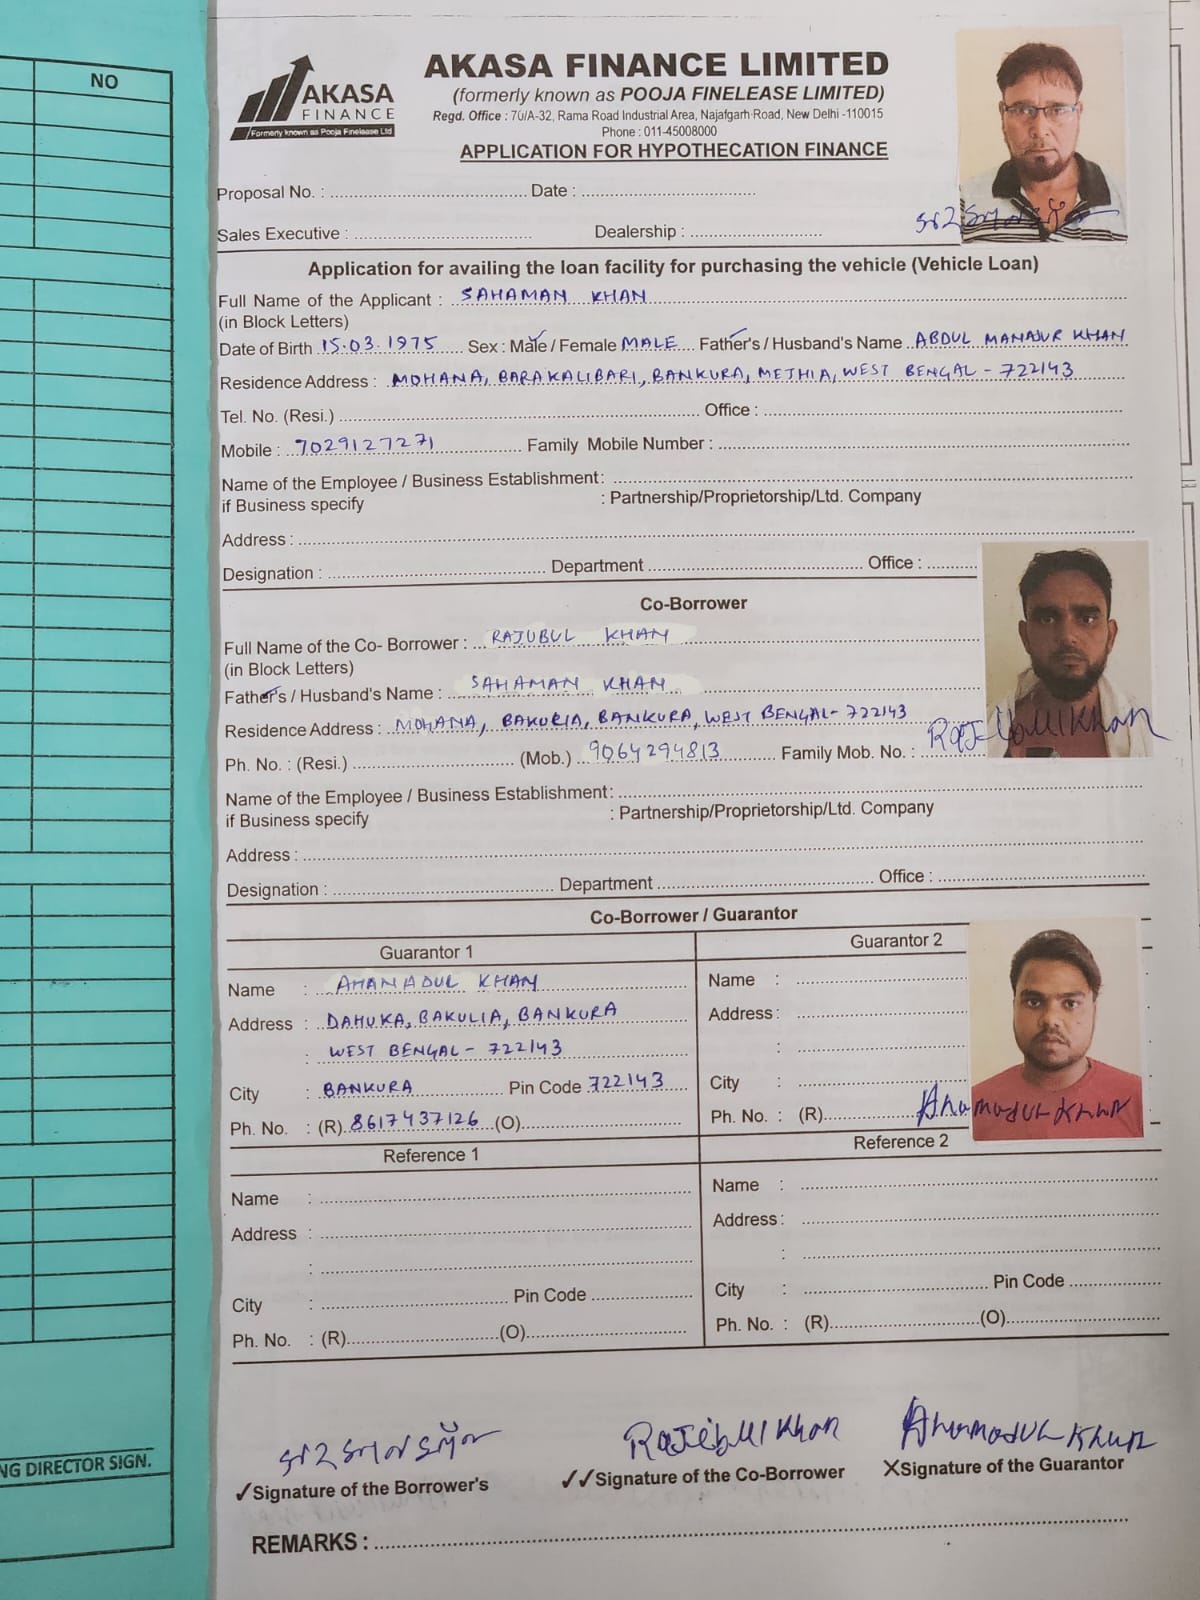 NO
NG DIRECTOR SIGN.
AKASA
FINANCE
Formerly known as Pooja Finelease Ltd
AKASA FINANCE LIMITED
(formerly known as POOJA FINELEASE LIMITED)
Regd. Office : 70/A-32, Rama Road Industrial Area, Najafgarh Road, New Delhi -110015
Phone : 011-45008000
APPLICATION FOR HYPOTHECATION FINANCE
Proposal No. : Date :
Sales Executive : Dealership :
Application for availing the loan facility for purchasing the vehicle (Vehicle Loan)
Full Name of the Applicant : SAHAMAN KHAN
(in Block Letters)
Date of Birth 15.03.1975 Sex : Male / Female MALE Father's / Husband's Name ABDUL MANAJUR KHAN
Residence Address : MOHANA, BARAKALIBARI, BANKURA, MEJHIA, WEST BENGAL - 722143
Tel. No. (Resi.) Office :
Mobile : 7029127271 Family Mobile Number :
Name of the Employee / Business Establishment:
if Business specify : Partnership/Proprietorship/Ltd. Company
Address :
Designation : Department Office :
Co-Borrower
Full Name of the Co- Borrower : RAJUBUL KHAN
(in Block Letters)
Father's / Husband's Name : SAHAMAN KHAN
Residence Address : MOHANA, BAKURIA, BANKURA, WEST BENGAL- 722143
Ph. No. : (Resi.) (Mob.) 9064294813 Family Mob. No. :
Rajebul Khan
Name of the Employee / Business Establishment:
if Business specify : Partnership/Proprietorship/Ltd. Company
Address :
Designation : Department Office :
Co-Borrower / Guarantor
Guarantor 1 Guarantor 2
Name : AHAMADUL KHAN Name :
Address : DAHUKA, BAKULIA, BANKURA Address :
: WEST BENGAL - 722143 :
City : BANKURA Pin Code 722143 City :
Ph. No. : (R). 8617437126 (O) Ph. No. : (R) Ahamadul Khan
Reference 1 Reference 2
Name : Name :
Address : Address :
: :
City : Pin Code City : Pin Code
Ph. No. : (R) (O) Ph. No. : (R) (O)
Rajebul Khan Ahamadul Khan
✓Signature of the Borrower's ✓✓Signature of the Co-Borrower XSignature of the Guarantor
REMARKS :